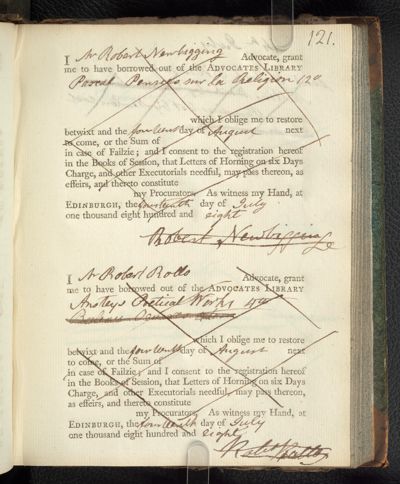 121.
I Mr Robert Newbigging Advocate, grant
me to have borrowed out of the ADVOCATES LIBRARY
Pascal Pensées sur la Religion 12o
which I oblige me to restore
betwixt and the fourteenth day of August next
to come, or the Sum of
in case of Failzie; and I consent to the registration hereof
in the Books of Session, that Letters of Horning on six Days
Charge, and other Executorials needful, may pass thereon, as
effeirs, and thereto constitute
my Procurators. As witness my Hand, at
EDINBURGH, the fourteenth day of July
one thousand eight hundred and eight
Robert Newbigging
I Mr Robert Rollo Advocate, grant
me to have borrowed out of the ADVOCATES LIBRARY
Ansteys Poetical Works 4to
which I oblige me to restore
betwixt and the fourteenth day of August next
to come, or the Sum of
in case of Failzie; and I consent to the registration hereof
in the Books of Session, that Letters of Horning on six Days
Charge, and other Executorials needful, may pass thereon,
as effeirs, and thereto constitute
my Procurators. As witness my Hand, at
EDINBURGH, the fourteenth day of July
one thousand eight hundred and eight